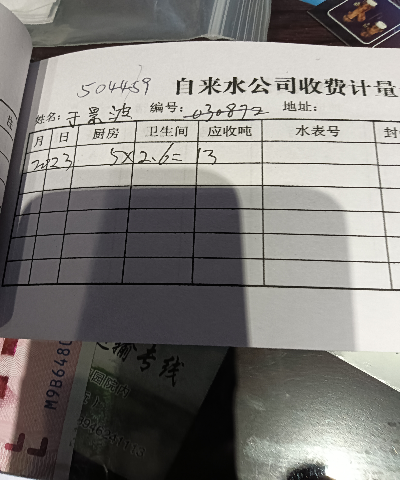 504459 自来水公司收费计量
姓名: 于景波 编号: 030872 地址:
月 日 厨房 卫生间 应收吨 水表号 封
2023 5×2.6=13
输专线
M9B6480